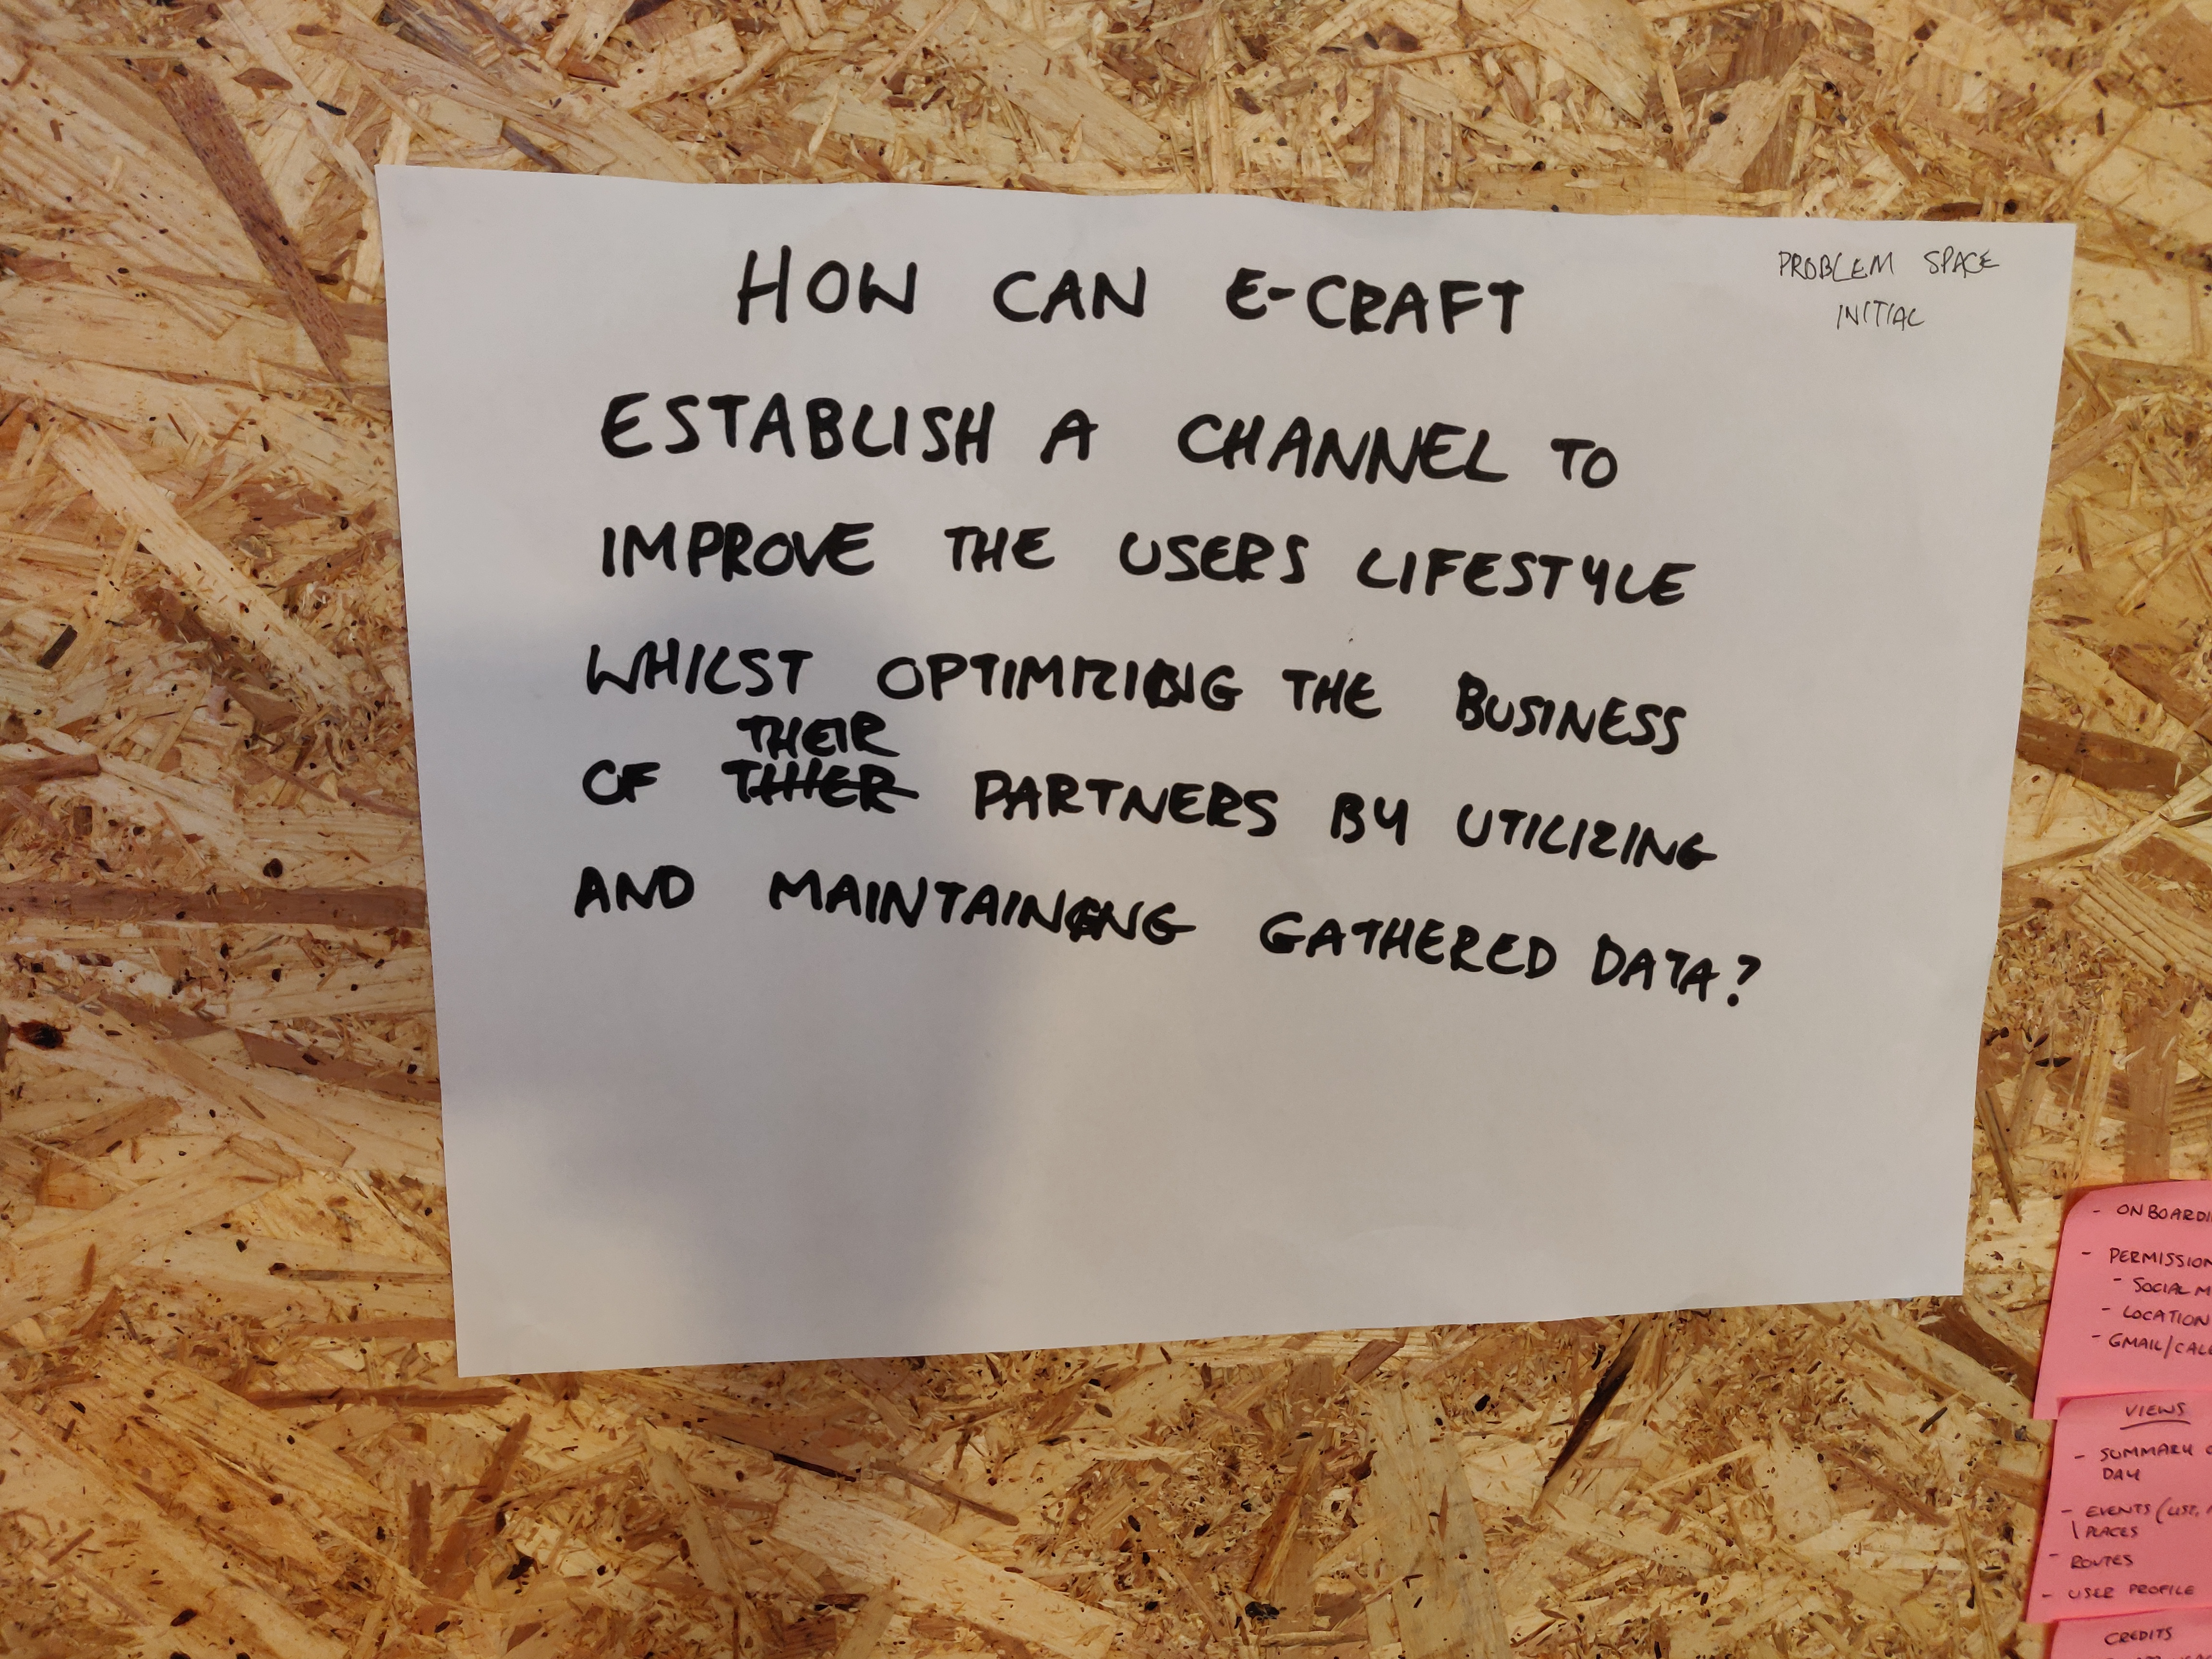 PROBLEM SPACE
INITIAL
HOW CAN E-CRAFT
ESTABLISH A CHANNEL TO
IMPROVE THE USERS LIFESTYLE
WHILST OPTIMIZING THE BUSINESS
THEIR
OF THIER PARTNERS BY UTILIZING
AND MAINTAINING GATHERED DATA?
- ONBOARDI
- PERMISSION
- SOCIAL M
- LOCATION
- GMAIL/CALE
VIEWS
- SUMMARY
DAY
- EVENTS (LIST,
PLACES
- ROUTES
- USER PROFILE
CREDITS